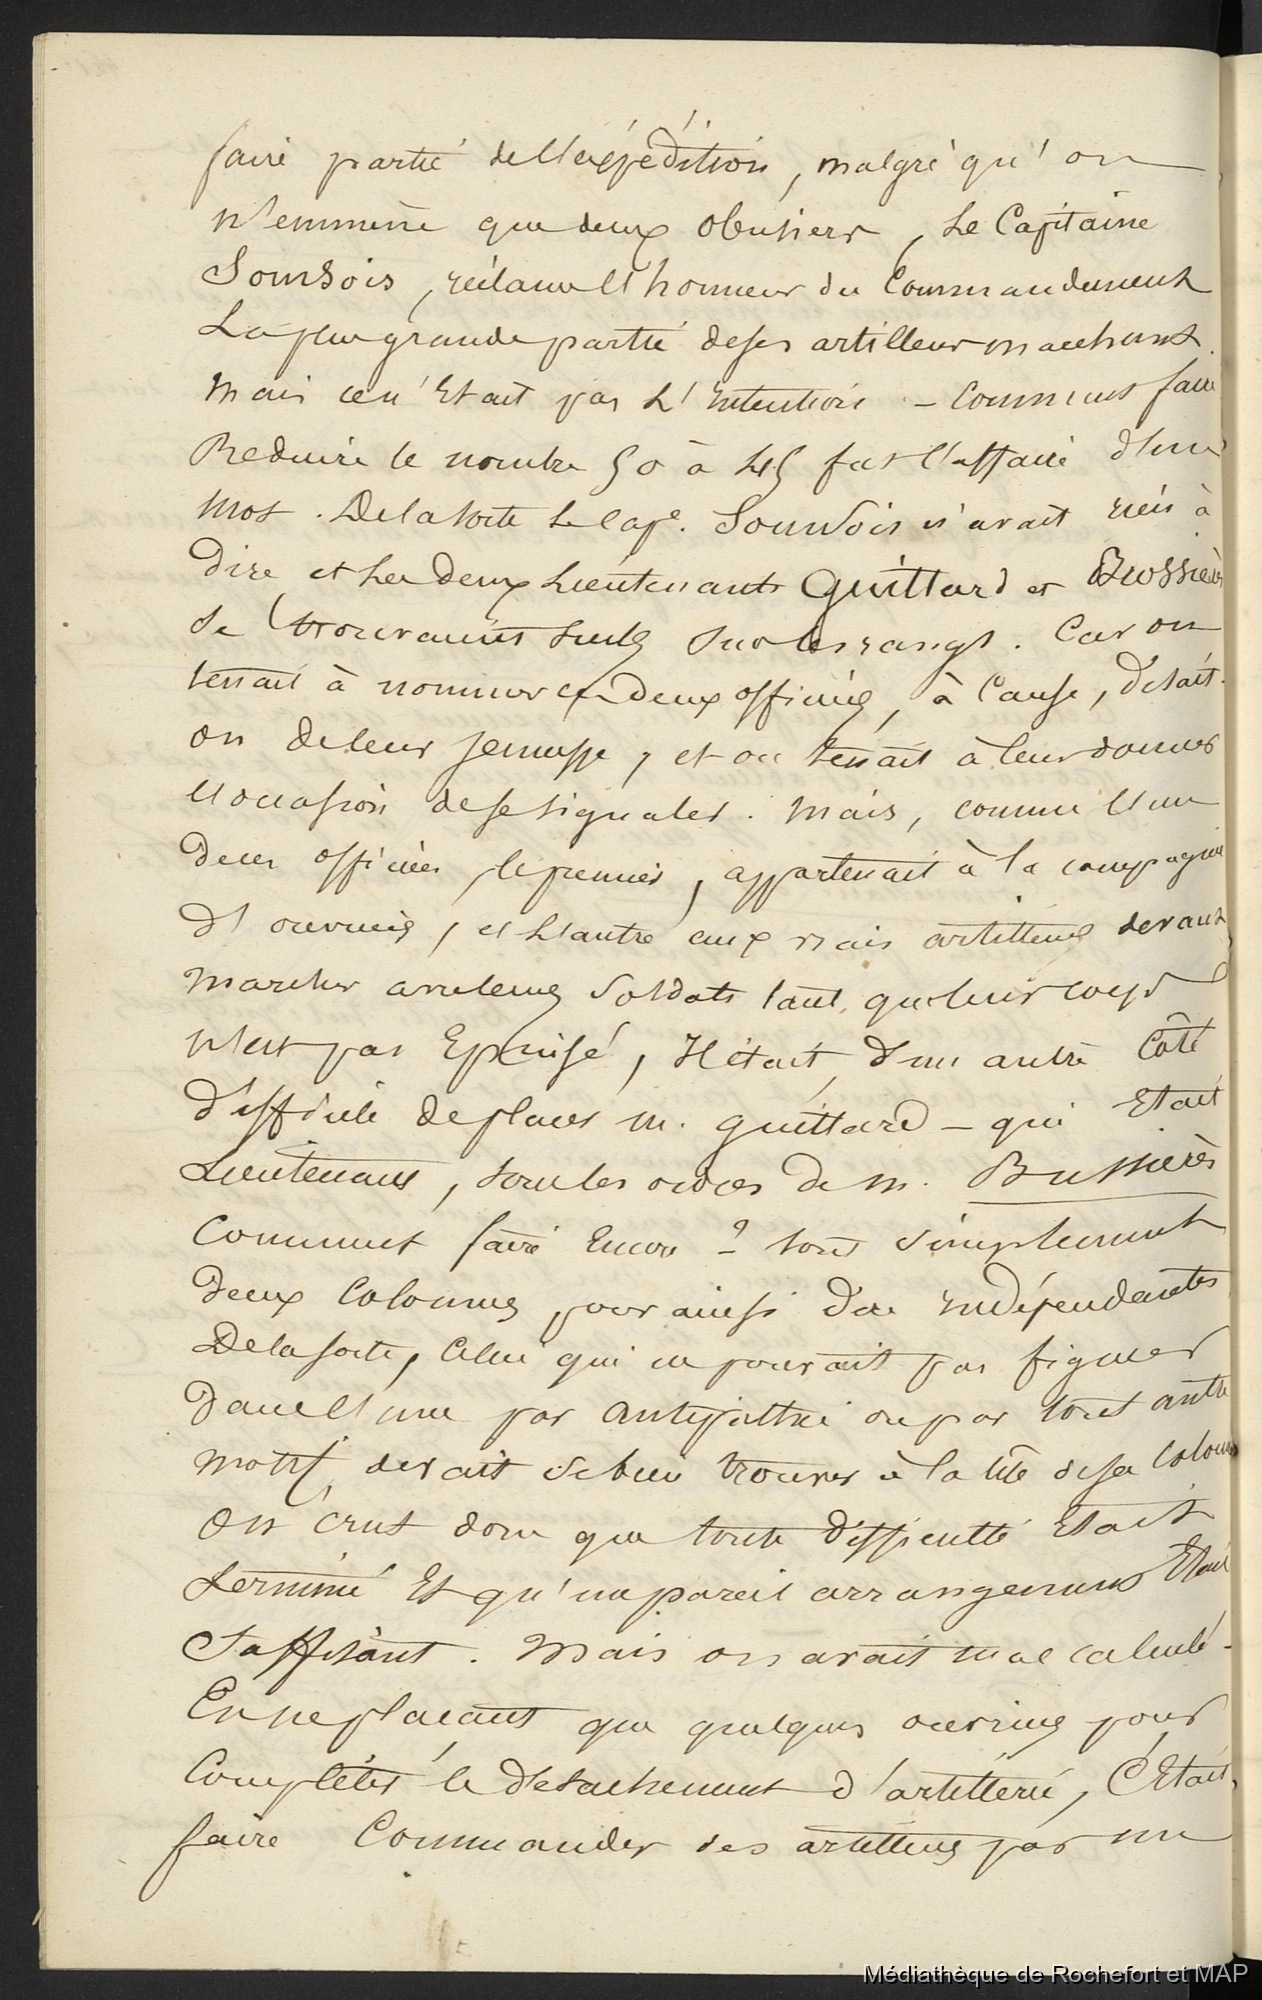 faire partie de l'expédition, malgré qu'on
n'emmène que deux obusiers, Le Capitaine
Sourdois, réclame l'honneur du Commandement
La plus grande partie de ses artilleurs marchant.
Mais ce n'Etait pas L'Intention – Comment faire
Reduire le nombre 50 à 45 fut l'affaire d'un
mot. De la sorte Le Cape. Sourdois n'avait rien à
Dire, et Les Deux Lieutenants Guittard et Bussières
se trouvaient seuls sur les rangs. Car on
tenait à nommer ces Deux officiers, à Cause, disait-
on de leur jeunesse, et on tenait à leur donner
l'occasion de se signaler. Mais, comme l'un
Deces officiers, le premier, appartenait à la compagnie
D'ouvriers, et L'autre aux vrais artilleurs devant
Marcher avec leurs Soldats tant que leur corps
n'est pas Epuisé, Il était D'un autre Côté
Difficile de placer m. Guittard – qui Etait
Lieutenant, sous les ordres de m. Bussières
Comment faire Encore ? tout simplement
Deux Colonnes, pour ainsi Dire Indépendantes
De la sorte, Celui qui ne pouvait pas figurer
Dans l'une par antipathie ou par tout autre
Motif, devait se bien trouver à la tête de sa Colonne
On crut donc que toute Difficulté Etait
Terminé Et qu'un pareil arrangement Etait
Suffisant. Mais on avait mal calculé –
En ne plaçant que quelques ouvriers pour
Compléter le Détachement d'artillerie, C'Etait,
faire Commander des artilleurs par un
Médiathèque de Rochefort et MAP